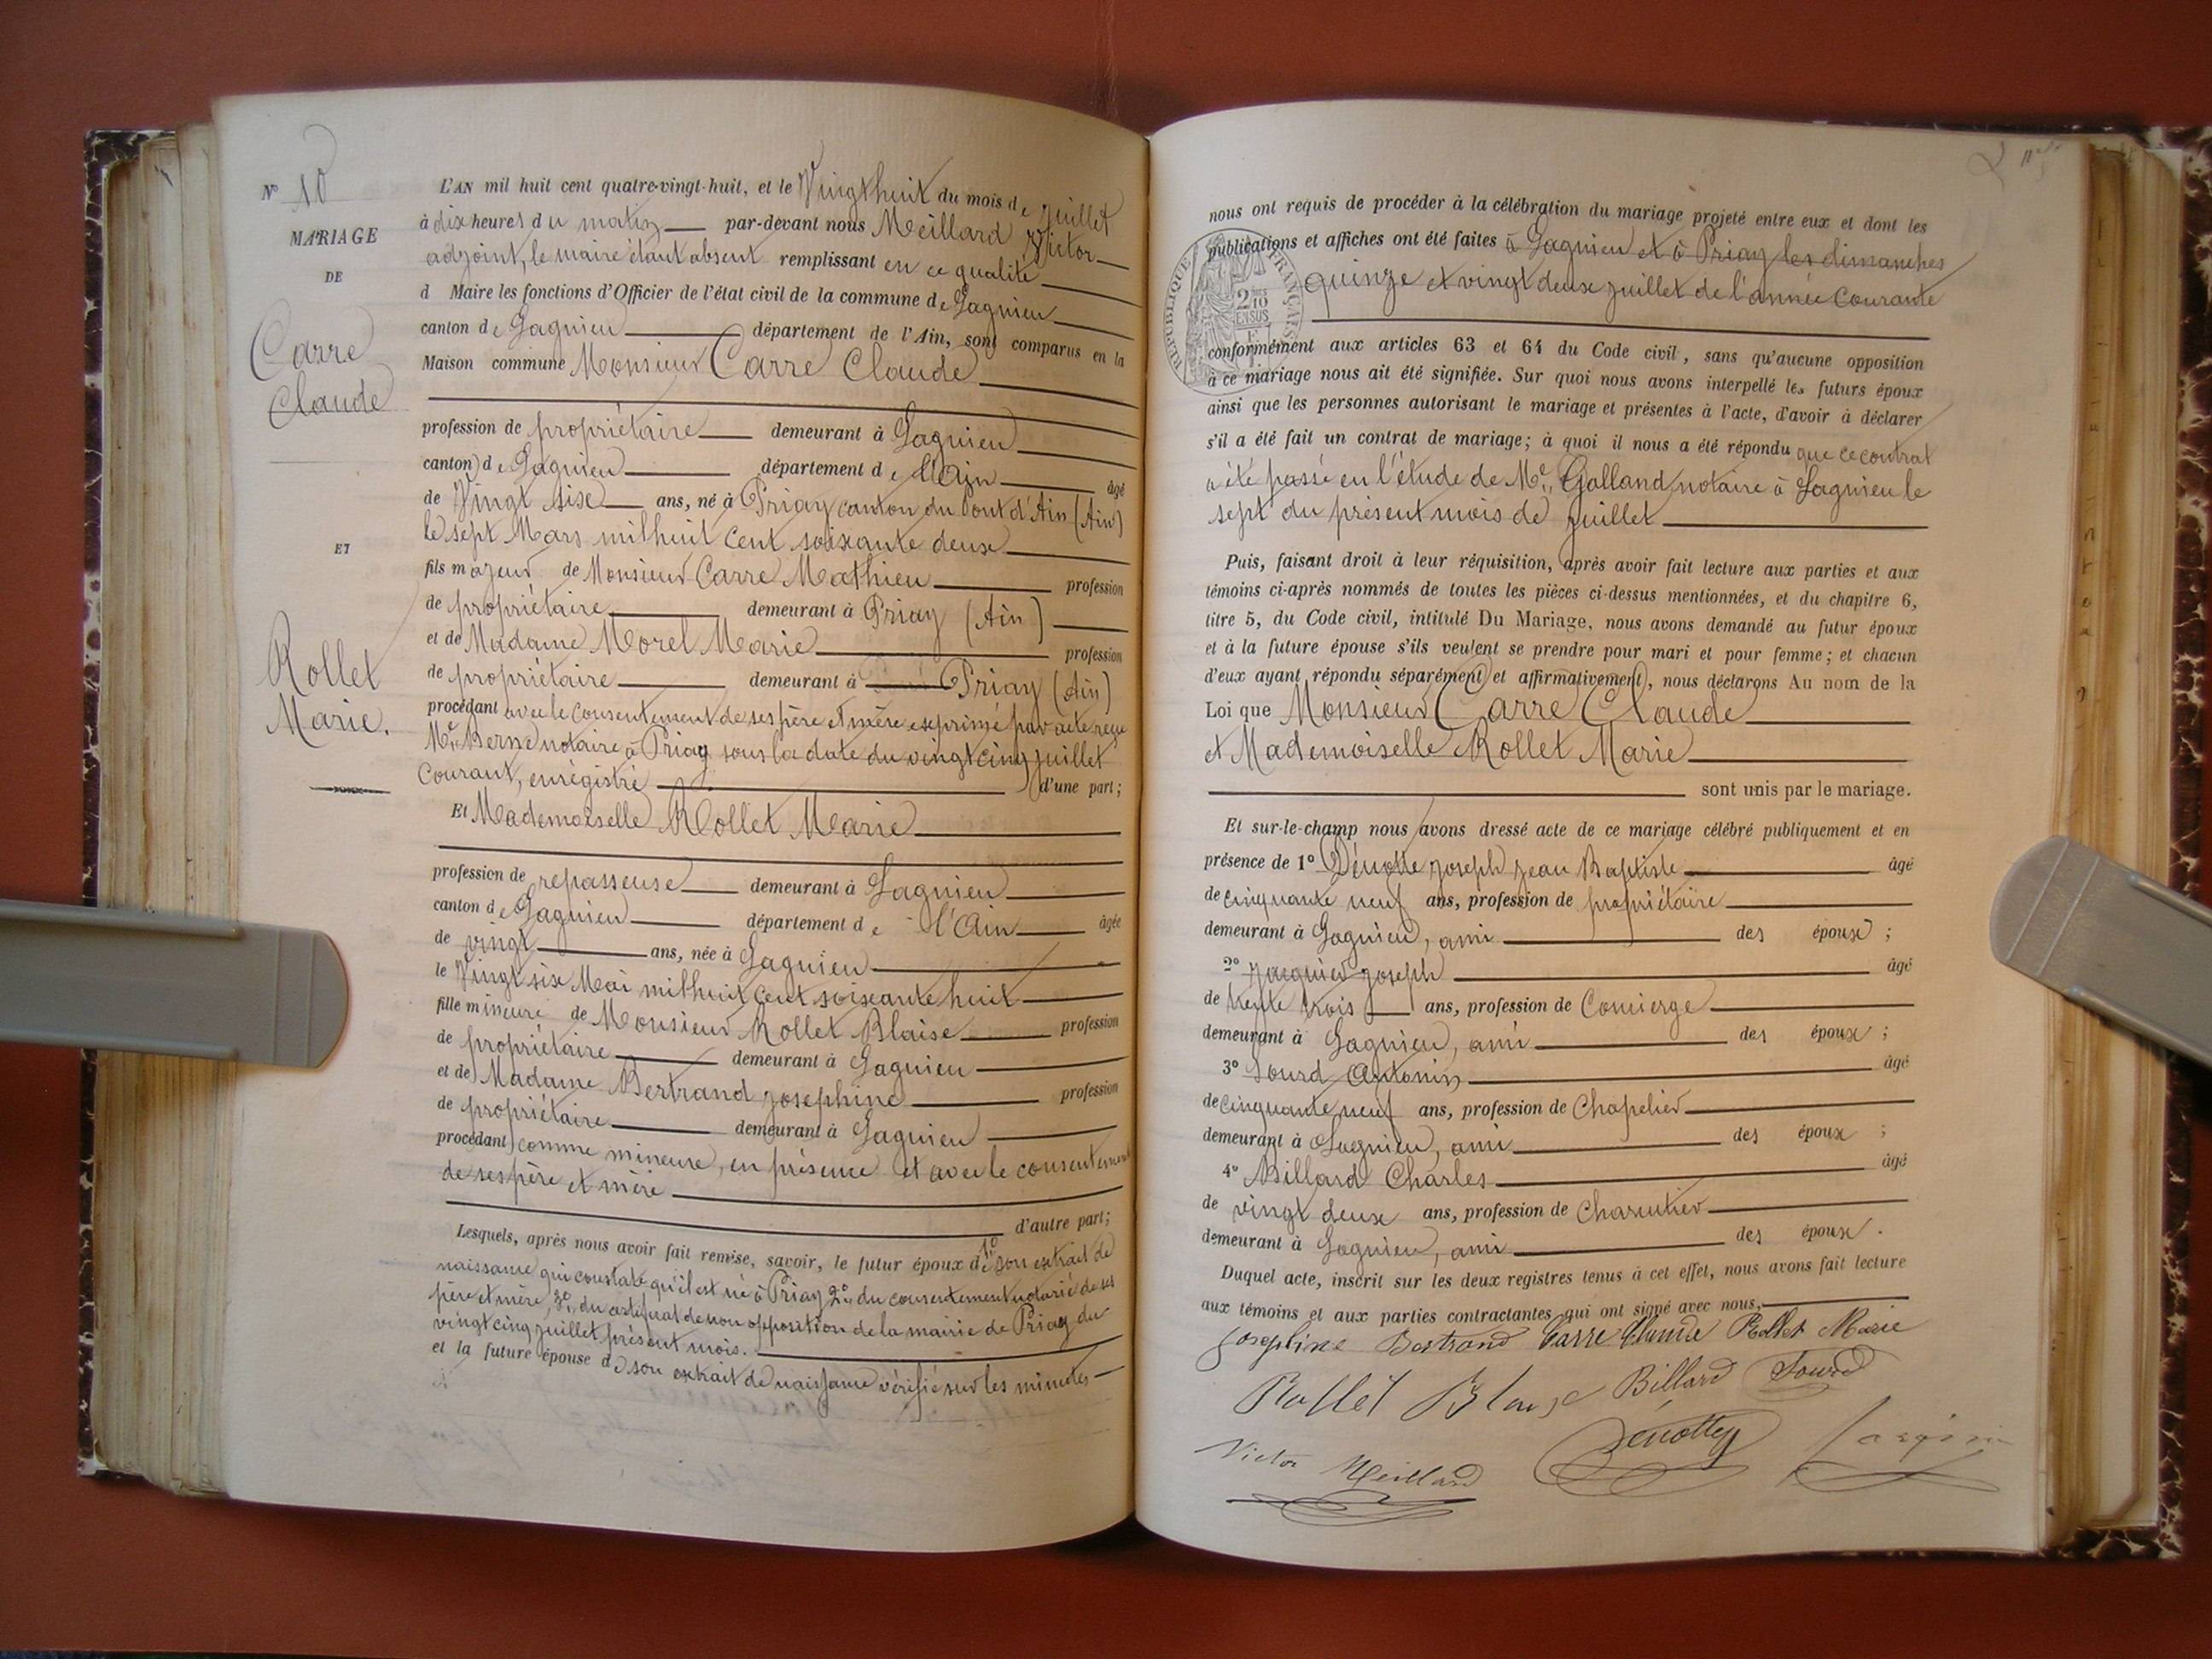 N° 10
MARIAGE
DE
Carre
Claude
ET
Rollet
Marie.
L'AN mil huit cent quatre-vingt-huit, et le Vingt huit du mois de juillet
à dix heures du matin par-devant nous Meillard Victor
adjoint, le maire étant absent remplissant en ce qualité
d Maire les fonctions d'Officier de l'état civil de la commune de Lagnieu
canton de Lagnieu département de l'Ain, sont comparus en la
Maison commune Monsieur Carre Claude
profession de propriétaire demeurant à Lagnieu
canton de Lagnieu département de l'Ain âgé
de Vingt six ans, né à Priay canton du Pont d'Ain (Ain)
le sept Mars mil huit cent soixante deux
fils majeur de Monsieur Carre Mathieu profession
de propriétaire demeurant à Priay (Ain)
et de Madame Morel Marie profession
de propriétaire demeurant à Priay (Ain)
procédant avec le consentement de ses père et mère exprimé par acte reçu
Me Berne notaire à Priay sous la date du vingt cinq juillet
Courant, enrégistré d'une part;
Et Mademoiselle Rollet Marie
profession de repasseuse demeurant à Lagnieu
canton de Lagnieu département de l'Ain âgée
de vingt ans, née à Lagnieu
le Vingt six Mai mil huit cent soixante huit
fille mineure de Monsieur Rollet Blaise profession
de propriétaire demeurant à Lagnieu
et de Madame Bertrand Josephine profession
de propriétaire demeurant à Lagnieu
procédant comme mineure, en présence et avec le consentement
de ses père et mère
d'autre part;
Lesquels, après nous avoir fait remise, savoir, le futur époux de 1° son extrait de
naissance qui constate qu'il est né à Priay 2° du consentement notarié de ses
père et mère, 3° du certificat de non opposition de la mairie de Priay du
vingt cinq juillet présent mois.
et la future épouse de son extrait de naissance vérifié sur les minutes
nous ont requis de procéder à la célébration du mariage projeté entre eux et dont les
publications et affiches ont été faites à Lagnieu et à Priay les dimanches
quinze et vingt deux juillet de l'année Courante
RÉPUBLIQUE FRANÇAISE
2/10 EN SUS
conformément aux articles 63 et 64 du Code civil, sans qu'aucune opposition
à ce mariage nous ait été signifiée. Sur quoi nous avons interpellé les futurs époux
ainsi que les personnes autorisant le mariage et présentes à l'acte, d'avoir à déclarer
s'il a été fait un contrat de mariage; à quoi il nous a été répondu que ce contrat
a été passé en l'étude de Me Galland, notaire à Lagnieu le
sept du présent mois de juillet
Puis, faisant droit à leur réquisition, après avoir fait lecture aux parties et aux
témoins ci-après nommés de toutes les pièces ci-dessus mentionnées, et du chapitre 6,
titre 5, du Code civil, intitulé Du Mariage, nous avons demandé au futur époux
et à la future épouse s'ils veulent se prendre pour mari et pour femme; et chacun
d'eux ayant répondu séparément et affirmativement, nous déclarons Au nom de la
Loi que Monsieur Carre Claude
et Mademoiselle Rollet Marie
sont unis par le mariage.
Et sur-le-champ nous avons dressé acte de ce mariage célébré publiquement et en
présence de 1° Joseph Jean Baptiste âgé
de cinquante neuf ans, profession de propriétaire
demeurant à Lagnieu, ami des époux;
2° Jacquier Joseph âgé
de trente trois ans, profession de Concierge
demeurant à Lagnieu, ami des époux;
3° Sourd Antonin âgé
de cinquante neuf ans, profession de Chapelier
demeurant à Lagnieu, ami des époux;
4° Billard Charles âgé
de vingt deux ans, profession de Charcutier
demeurant à Lagnieu, ami des époux.
Duquel acte, inscrit sur les deux registres tenus à cet effet, nous avons fait lecture
aux témoins et aux parties contractantes qui ont signé avec nous,
Josephine Bertrand Carre Claude Rollet Marie
Rollet Blaise Billard Sourd
Victor Meillard